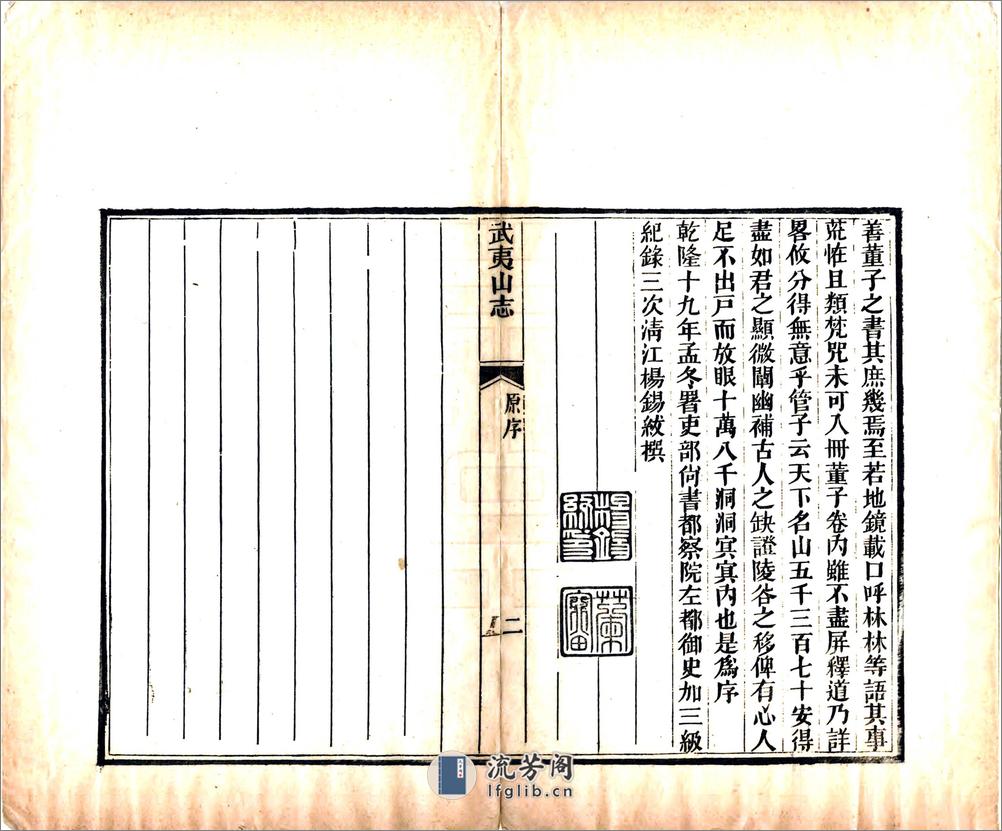 善董子之書其庶幾焉至若地鏡載口呼林林等語其事
荒怪且類梵咒未可入冊董子卷內雖不盡屏釋道乃詳
畧攸分得無意乎管子云天下名山五千三百七十安得
盡如君之顯微闡幽補古人之缺證陵谷之移俾有心人
足不出戸而放眼十萬八千洞洞冥冥內也是爲序
乾隆十九年孟冬署吏部尙書都察院左都御史加三級
紀錄三次淸江楊錫紱撰
楊錫紱印
武夷山志
原序
二
流芳阁
lfglib.cn